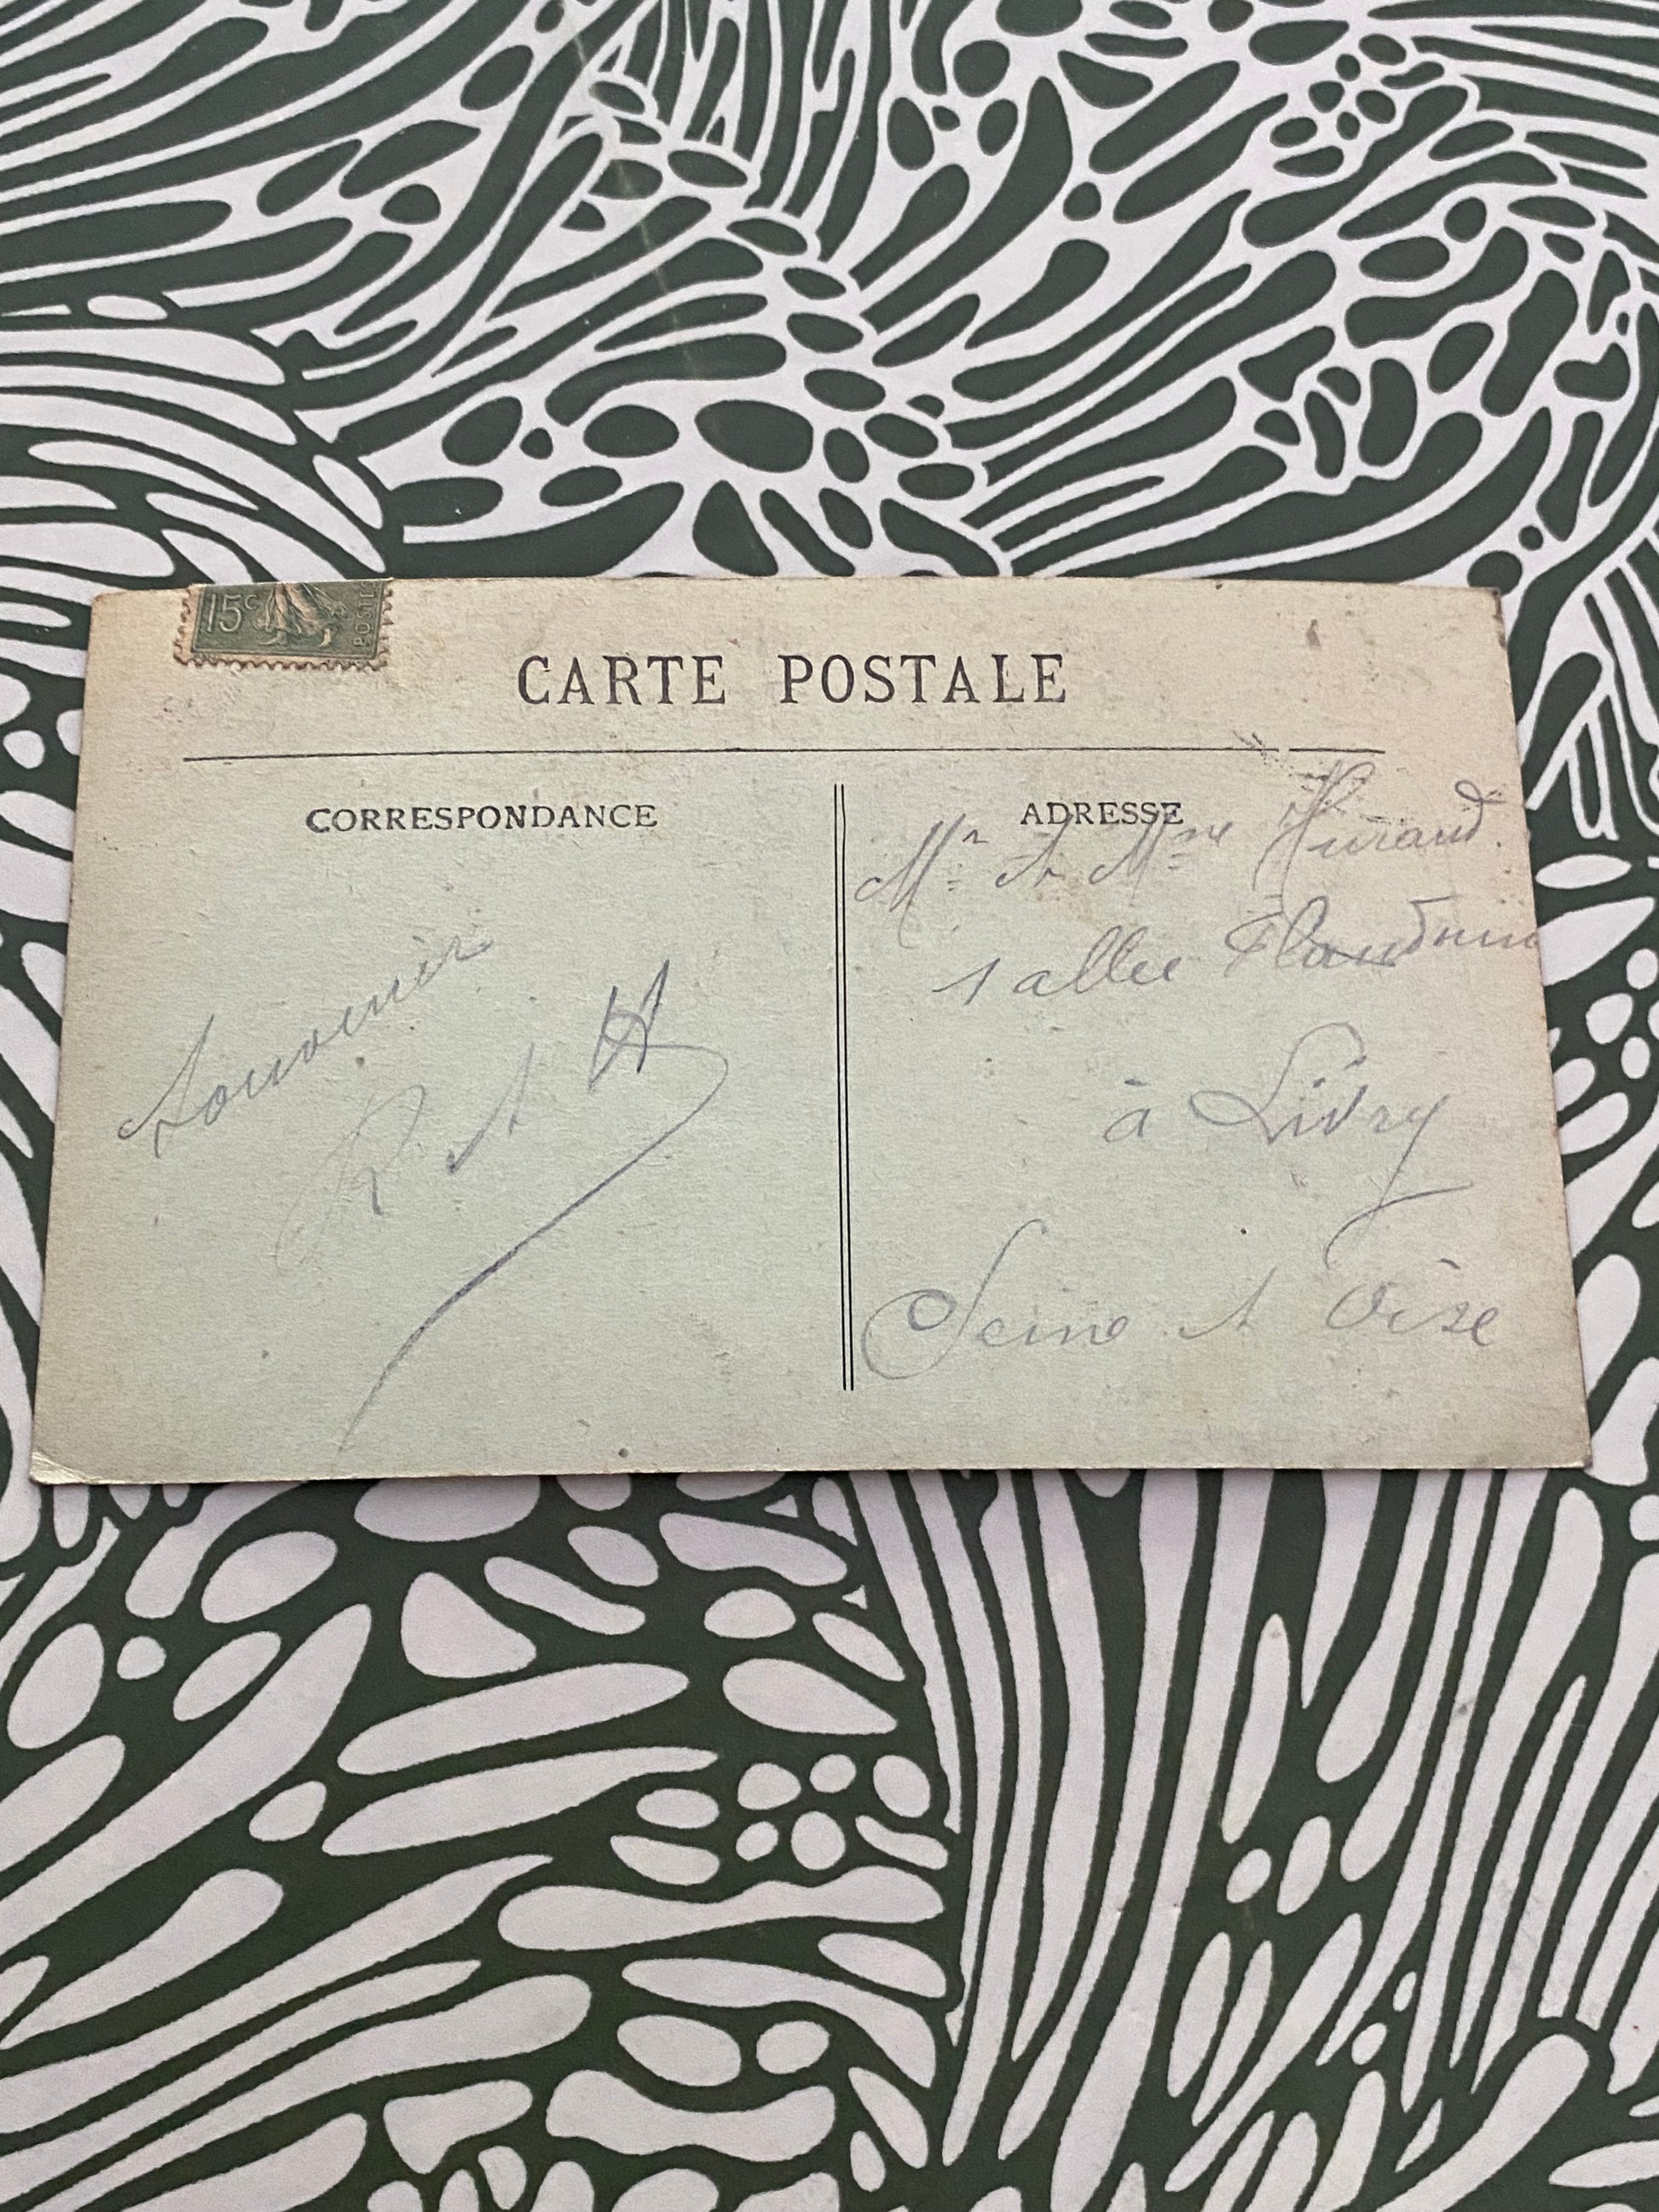 15c
POSTE
CARTE POSTALE
CORRESPONDANCE
Souvenir
R et H
ADRESSE
Mr et Mme Huraud.
1 allée
à Livry
Seine et Oise